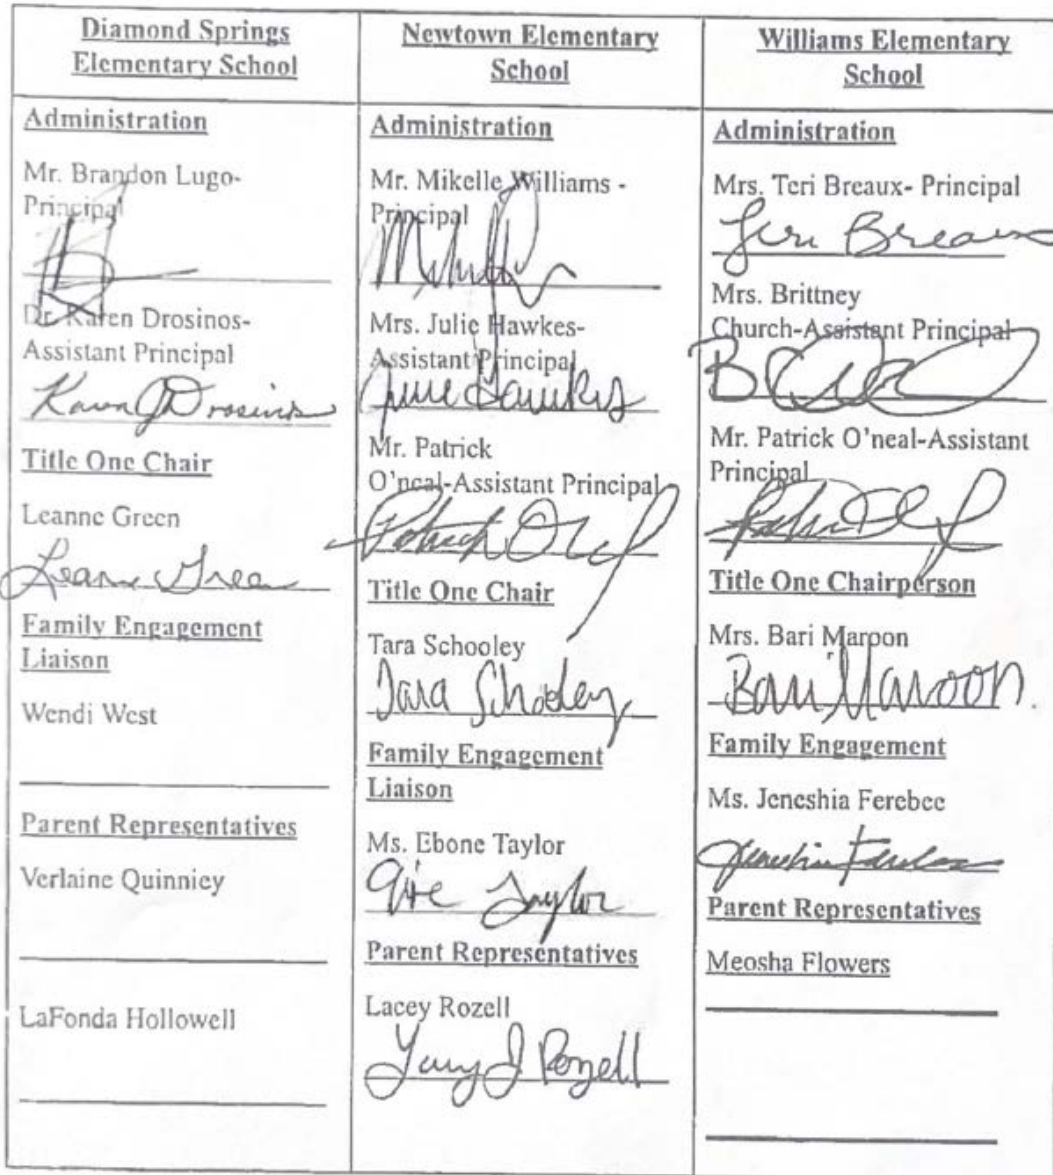 Diamond Springs
Elementary School
Administration
Mr. Brandon Lugo-
Principal
Dr. Karen Drosinos-
Assistant Principal
Karen J Drosinos
Title One Chair
Leanne Green
Leanne Green
Family Engagement
Liaison
Wendi West
Parent Representatives
Verlaine Quinniey
LaFonda Hollowell
Newtown Elementary
School
Administration
Mr. Mikelle Williams -
Principal
Mrs. Julie Hawkes-
Assistant Principal
Julie Hawkes
Mr. Patrick
O'neal-Assistant Principal
Patrick
Title One Chair
Tara Schooley
Tara Schooley
Family Engagement
Liaison
Ms. Ebone Taylor
Taylor
Parent Representatives
Lacey Rozell
Lacey J Rozell
Williams Elementary
School
Administration
Mrs. Teri Breaux- Principal
Teri Breaux
Mrs. Brittney
Church-Assistant Principal
Mr. Patrick O'neal-Assistant
Principal
Title One Chairperson
Mrs. Bari Maroon
Bari Maroon
Family Engagement
Ms. Jeneshia Ferebee
Jeneshia Ferebee
Parent Representatives
Meosha Flowers